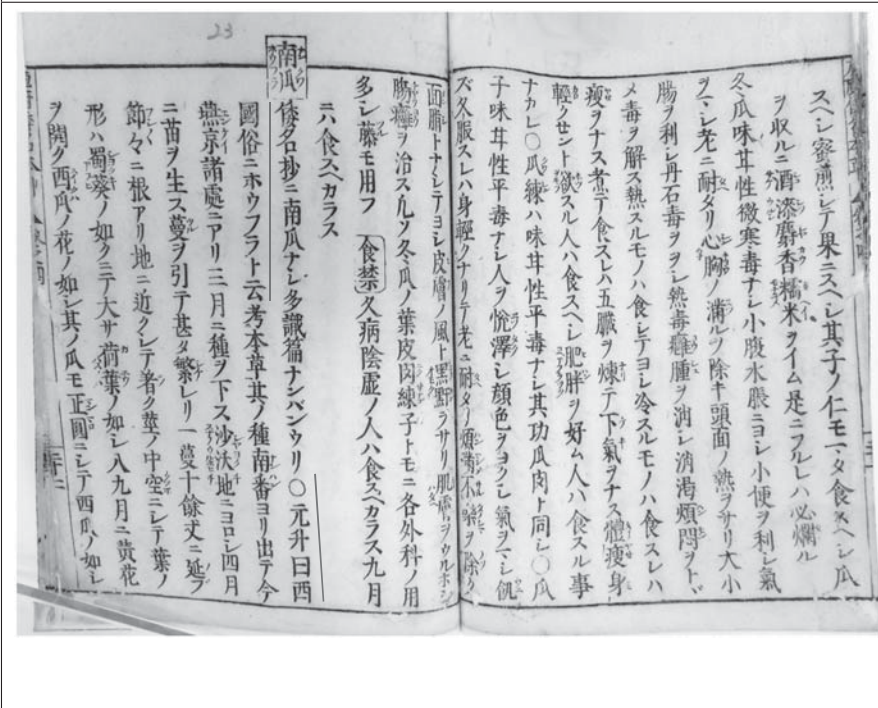 スヘシ蜜煎シテ果ニスヘシ其子ノ仁モマタ食スヘシ瓜
ヲ収ルニ酒漆麝香糯米ヲイム是ニフルレハ必爛ル
冬瓜味甘性微寒毒ナシ小腹水脹ニヨシ小便ヲ利シ氣
ヲマシ老ニ耐タリ心胸ノ満ルヲ除キ頭面ノ熱ヲサリ大小
腸ヲ利シ丹石毒ヲケシ熱毒癰腫ヲ消シ消渇煩悶ヲトヾ
メ毒ヲ解ス熱スルモノハ食シテヨシ冷スルモノハ食スレハ
瘦ヲナス煮テ食スレハ五臓ヲ煉テ下氣ヲナス體瘦身
輕クセント欲スル人ハ食スヘシ肥胖ヲ好ム人ハ食スル事
ナカレ〇瓜練ハ味甘性平毒ナシ其功瓜肉ト同シ〇瓜
子味甘性平毒ナシ人ヲ悦澤シ顔色ヲヨクシ氣ヲマシ飢
ズ久服スレハ身輕クナリテ老ニ耐タリ煩満不樂ヲ除ク
面脂トナシテヨシ皮膚ノ風ト黒䵟ヲサリ肌膚ヲウルホシ
腸癰ヲ治ス凡ソ冬瓜ノ葉皮肉練子トモニ各外科ノ用
多シ藤モ用フ 食禁 久病陰虚ノ人ハ食スヘカラス九月
ニハ食スヘカラス
南瓜 倭名抄ニ南瓜ナシ多識篇ナンバンウリ〇元升曰西
國俗ニホウフラト云考本草其ノ種南番ヨリ出テ今
燕京諸處ニアリ三月ニ種ヲ下ス沙沃地ニヨロシ四月
ニ苗ヲ生ス蔓ヲ引テ甚タ繁レリ一蔓十餘丈ニ延ブ
節々ニ根アリ地ニ近クシテ着ク莖ノ中空ニシテ葉ノ
形ハ蜀葵ノ如クニテ大サ荷葉ノ如シ八九月ニ黄花
ヲ開ク西瓜ノ花ノ如シ其ノ瓜モ正圓ニシテ西瓜ノ如シ
23